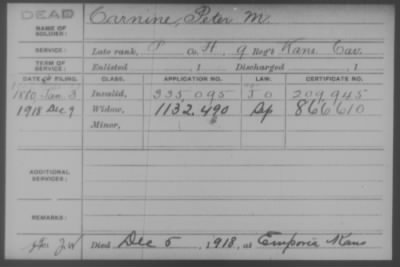 DEAD
NAME OF SOLDIER: Carnine, Peter M.
SERVICE: Late rank, P Co. H, 9 Reg't Kans. Cav.
TERM OF SERVICE: Enlisted , 1 Discharged , 1
DATE OF FILING. CLASS. APPLICATION NO. LAW. CERTIFICATE NO.
1880 Jan. 3 Invalid, 335.095 209.945
1918 Dec 9 Widow, 1132.490 866610
Minor,
ADDITIONAL SERVICES:
REMARKS:
Died Dec 5, 1918, at Emporia Kans